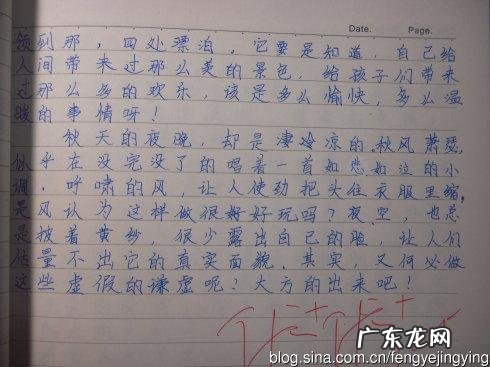 Date. Page.
领到那，四处漂泊。它要是知道，自己给
人间带来过那么美的景色，给孩子们带来
过那么多的欢乐，该是多么愉快，多么温
暖的事情呀！
秋天的夜晚，却是凄冷凉的。秋风萧瑟，
似乎在没完没了的唱着一首如悲如泣的小
调，呼啸的风，让人使劲把头往衣服里缩，
是风认为这样做很好好玩吗？夜空，也总
是披着黄纱，很少露出自己的脸，让人们
估量不出它的真实面貌。其实，又何必做
这些虚假的谦虚呢？大方的出来吧！
优+ 优+
广东龙网
blog.sina.com.cn/fengyejingying